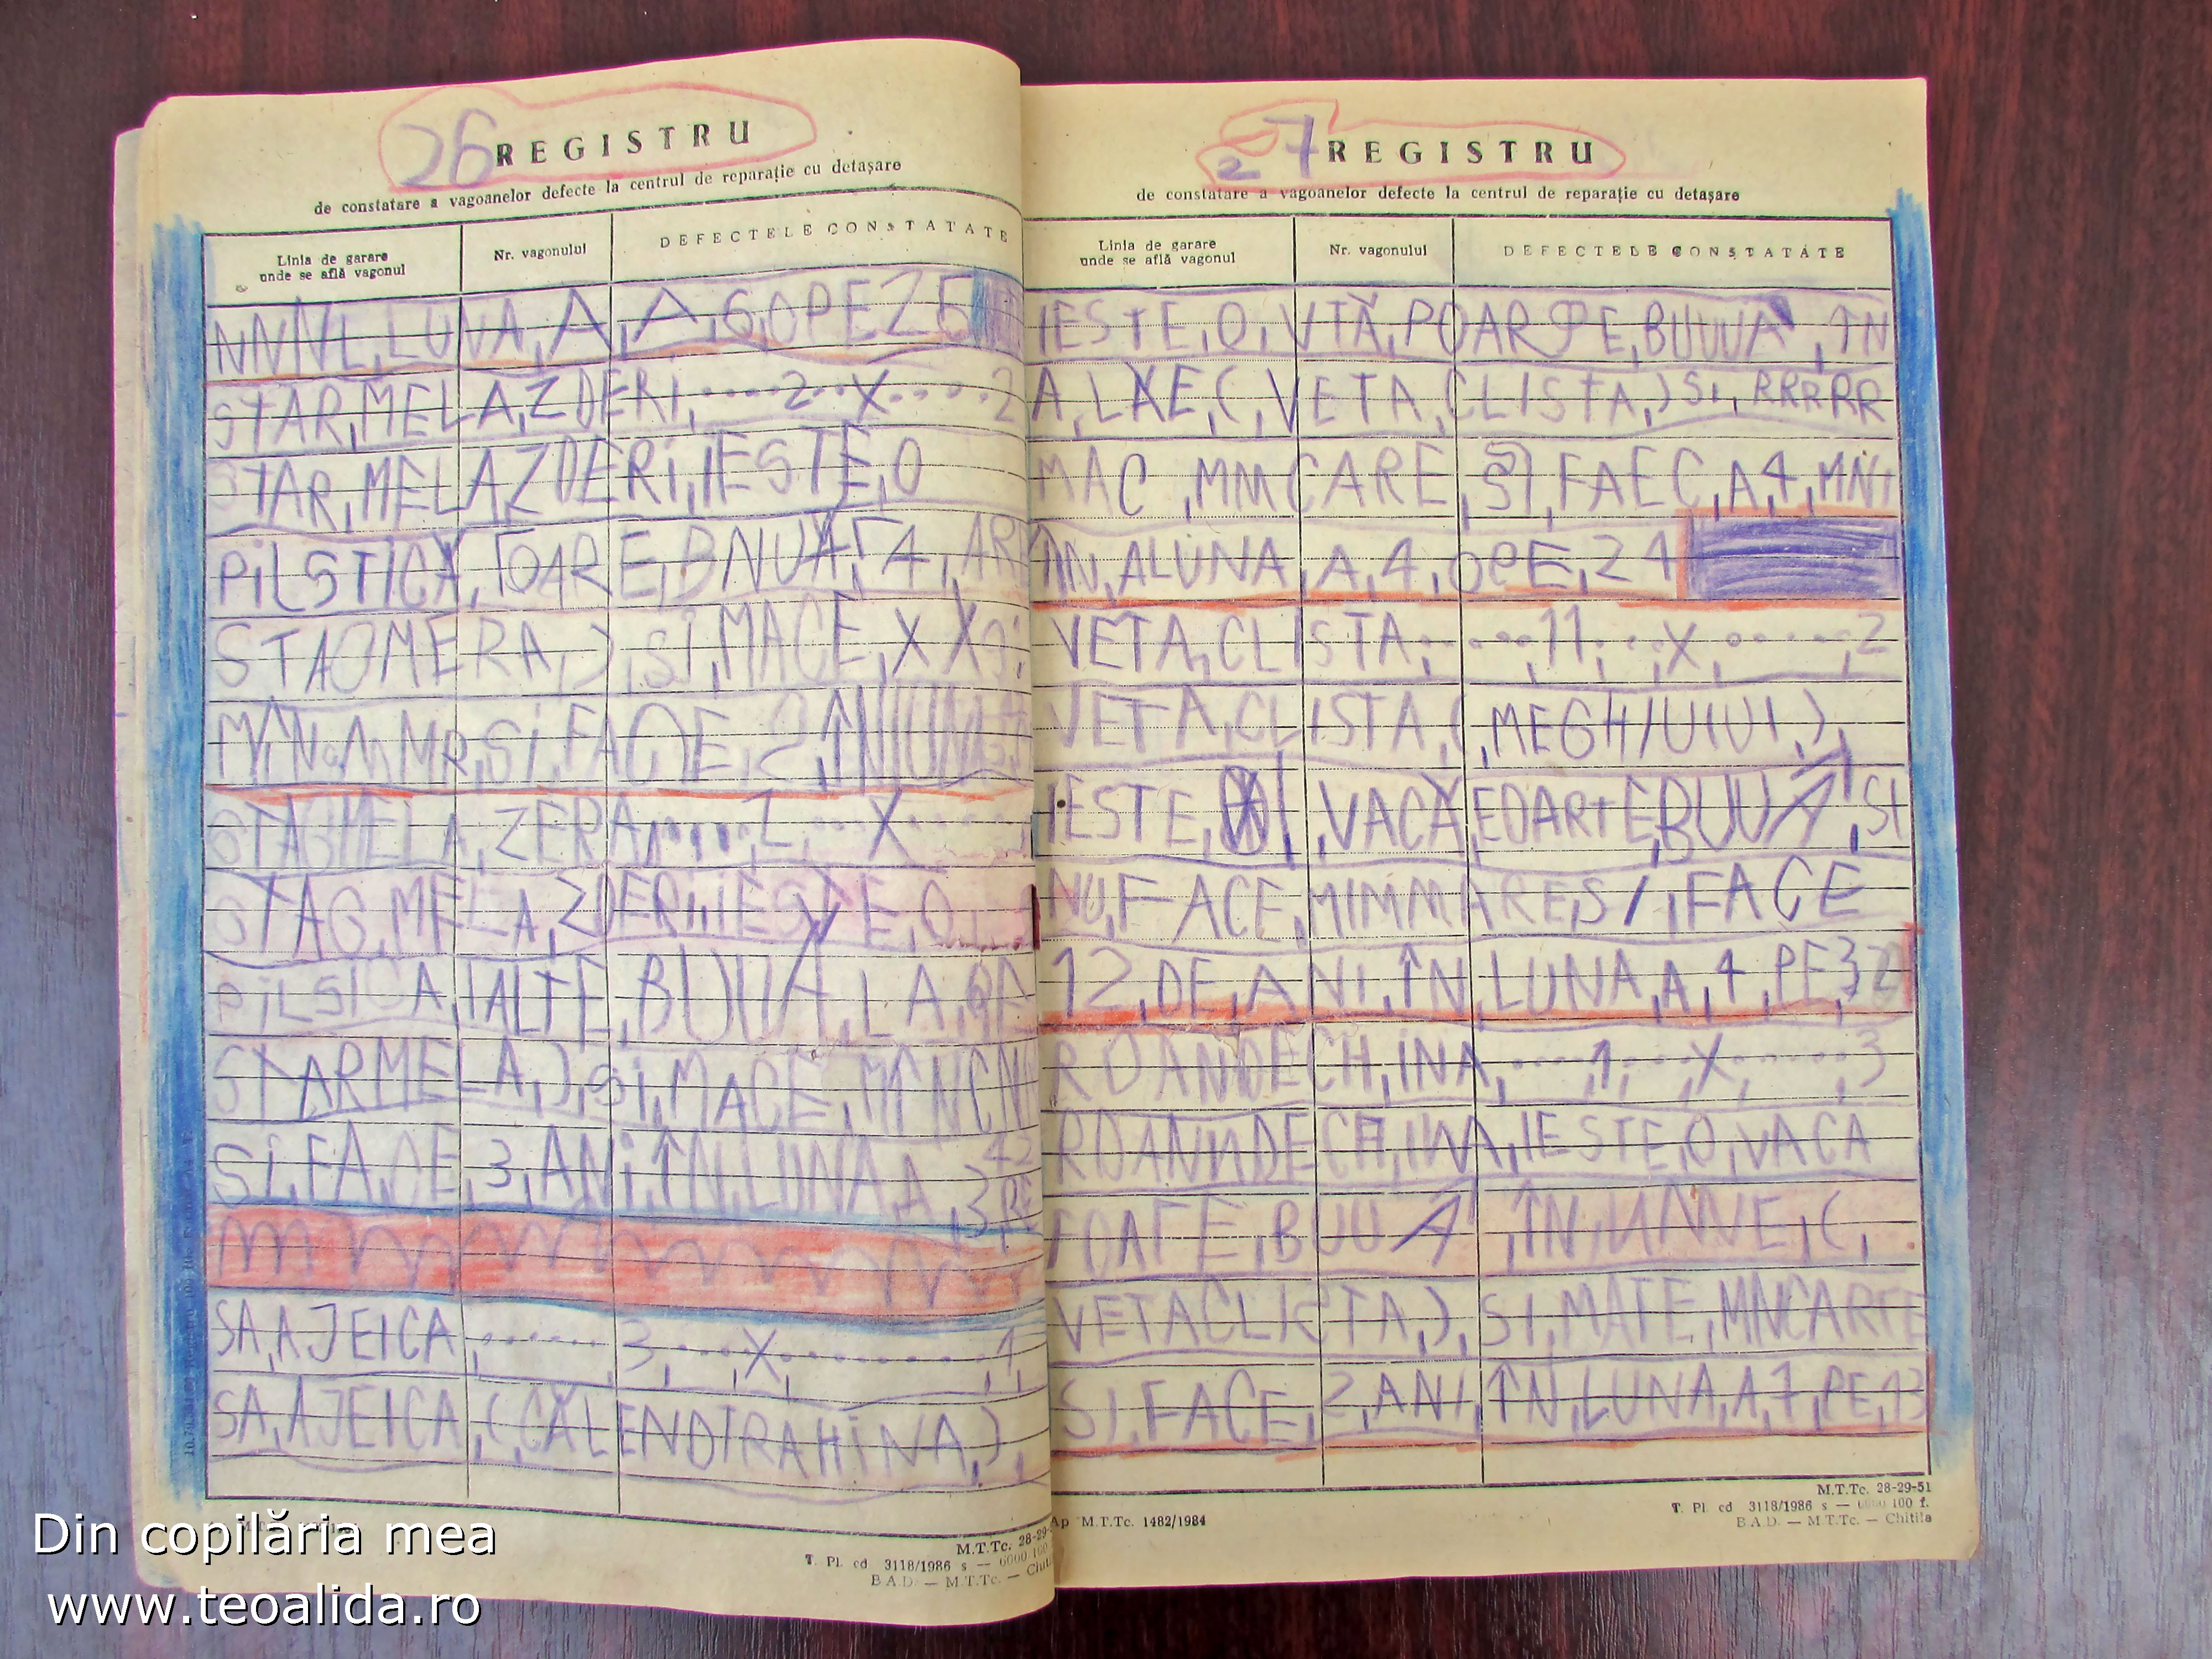 26 REGISTRU
de constatare a vagoanelor defecte la centrul de reparație cu detașare
Linia de garare
unde se află vagonul
Nr. vagonului
DEFECTELE CONSTATATE
NNNL,LUNA,A,A,6,OPEZ6
STAR,MELA,ZDERI,....2..X....2
STAR,MELAZDERI,IESTE,O
PILSTICĂ,FOARE,BNUĂ,
STAOMERA,),SI,MACE,XX
SI,FACE,2,ÎN
STAGMELA,ZERA,.....2...X....
STAG,MELA,ZDERI,IESTE,O,
PILSICA,IALTE,BUUĂ,LA,
STARMELA,),SI,MACE,MÎNCN
SI,FACE,3,ANI,ÎN,LUNA,A,3,PE
42
SA,AJEICA,......,3,...,X,.........,1,
SA,AJEICA,(,CĂLENDTRAHINA,),
M.T.Tc. 28-29-
T. Pl. cd 3118/1986 s — 6000 100
B.A.D. — M.T.Tc. — Chiti
27 REGISTRU
de constatare a vagoanelor defecte la centrul de reparație cu detașare
Linia de garare
unde se află vagonul
Nr. vagonului
DEFECTELE CONSTATATE
IESTE,O,VTĂ,POARTE,BUUUA,ÎN
A,LXE,(,VETA,CLISTA,)SI,RRRRR
MAC,MMCARE,SI,FAEC,A,4,MNI
ÎN,ALUNA,A,4,OPE,21
VETA,CLISTA,.....,11,...,X,......,2
VETA,CLISTA,(,MEGHIUIUI,),
IESTE,O,VACĂ,EOARTE,BUUĂ,SI
NU,FACE,MIMMARE,SI,FACE
12,DE,ANI,ÎN,LUNA,A,4,PE,32
ROANDECH,INA,.....1,...X,......,3
ROANNDECH,INA,IESTE,O,VACA
FOATE,BUUĂ,ÎN,UNNE,(,
VETACLICTA,),SI,MATE,MNCARTE
SI,FACE,2,ANI,ÎN,LUNA,A,7,PE,13
Ap M.T.Tc. 1482/1984
M.T.Tc. 28-29-51
T. Pl. cd 3118/1986 s — 6000 100 f.
B.A.D. — M.T.Tc. — Chitila
Din copilăria mea
www.teoalida.ro